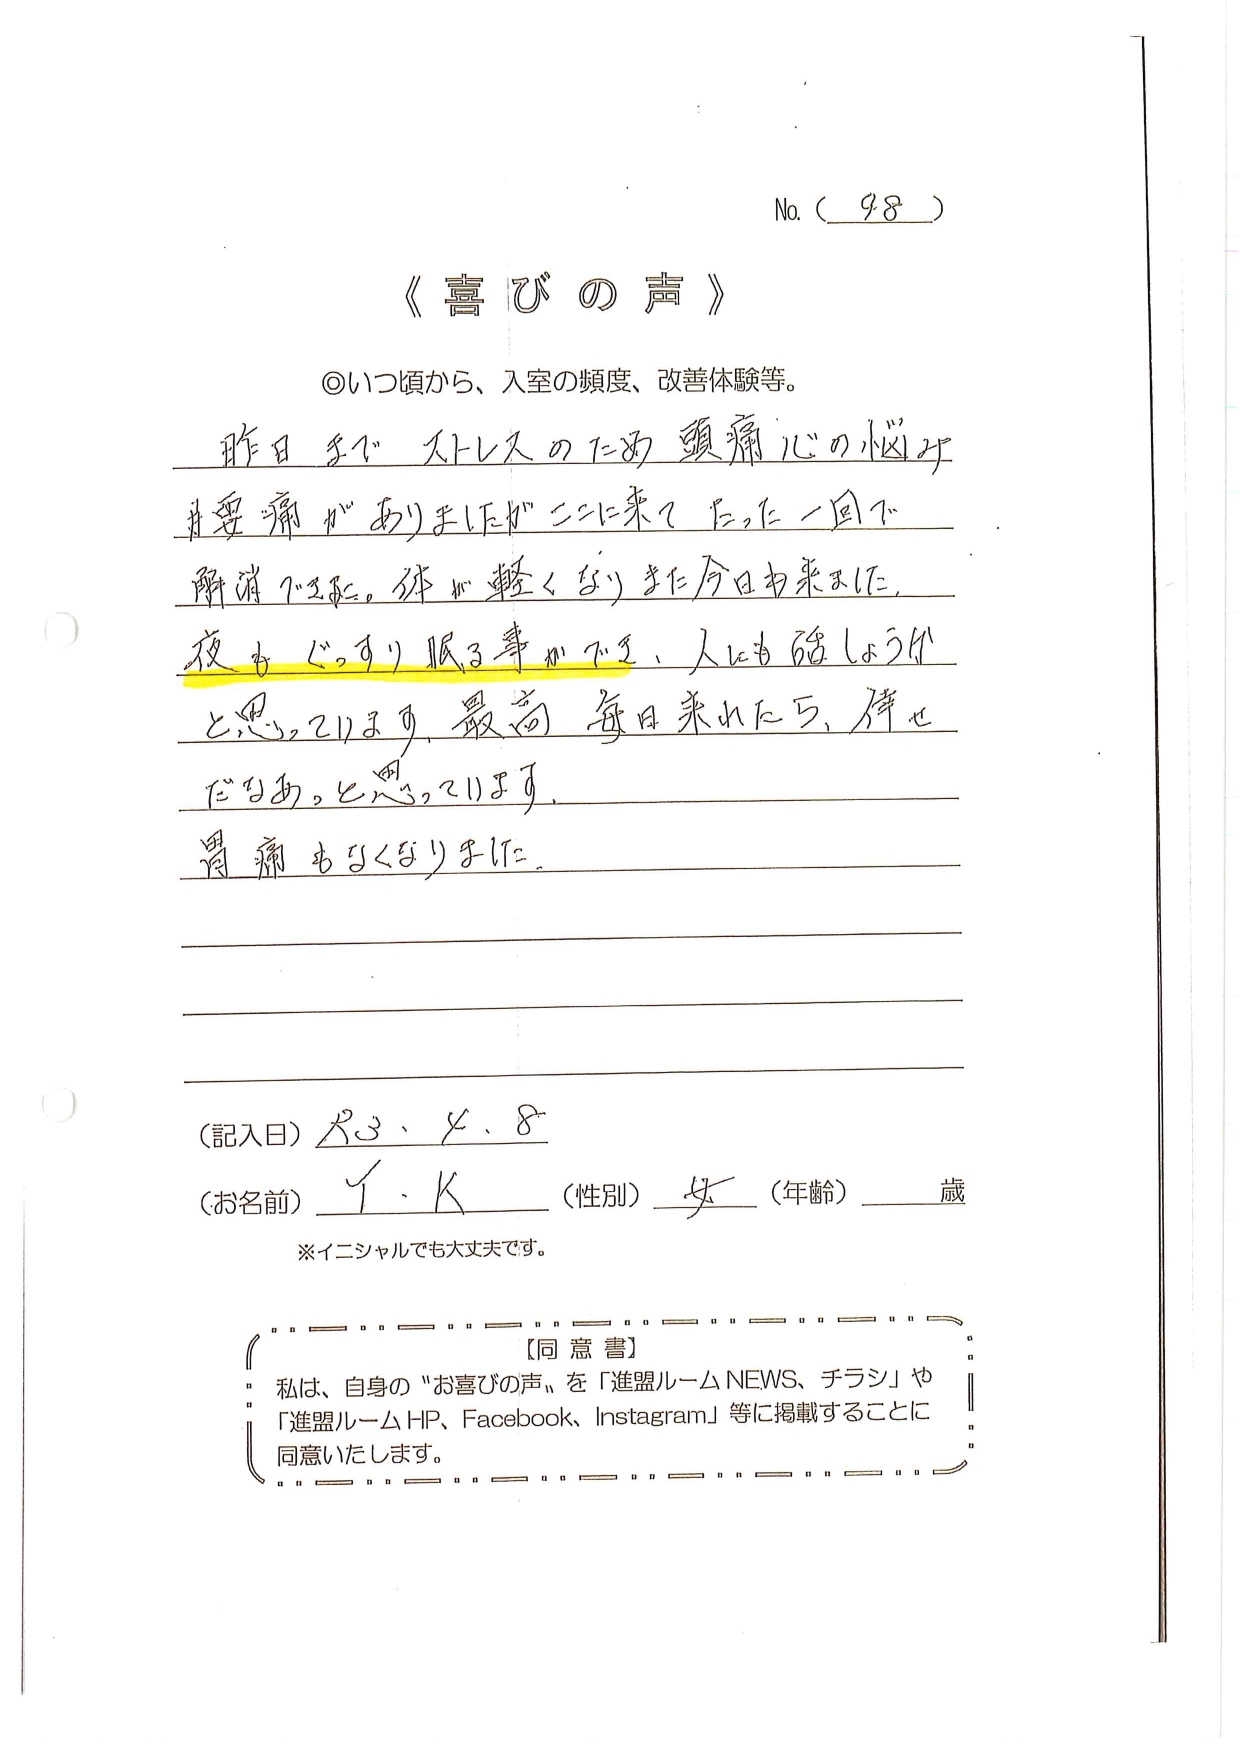 No.（ 98 ）
《 喜 び の 声 》
◎いつ頃から、入室の頻度、改善体験等。
昨日 まで ストレス の ため 頭痛 心の悩み
腰痛 が ありましたが ここに来て たった一回で
解消できた。体が軽くなり また今日も来ました。
夜も ぐっすり 眠る事ができ、人にも話しようが
と思っています。最高 毎日来れたら、倖せ
だなあっと思っています。
胃痛もなくなりました。
（記入日） R3 、4 、8
（お名前） Y . K （性別） 女 （年齢） 歳
※イニシャルでも大丈夫です。
【同 意 書】
私は、自身の〝お喜びの声〟を「進盟ルーム NEWS、チラシ」や
「進盟ルーム HP、Facebook、Instagram」等に掲載することに
同意いたします。